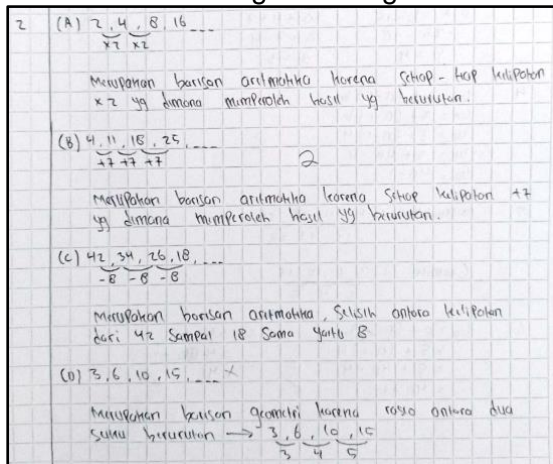 2 (A) 2, 4, 8, 16 ...
x2 x2
Merupakan barisan aritmatika karena setiap-tiap kelipatan
x 2 yg dimana memperoleh hasil yg berurutan.
(B) 4, 11, 18, 25, ....
+7 +7 +7
2
Merupakan barisan aritmatika karena setiap kelipatan +7
yg dimana memperoleh hasil yg berurutan.
(C) 42, 34, 26, 18, ....
-8 -8 -8
Merupakan barisan aritmatika, Selisih antara kelipatan
dari 42 sampai 18 sama yaitu 8
(D) 3, 6, 10, 15, .... x
Merupakan barisan geometri karena rasio antara dua
suku berurutan → 3, 6, 10, 15
3 4 5